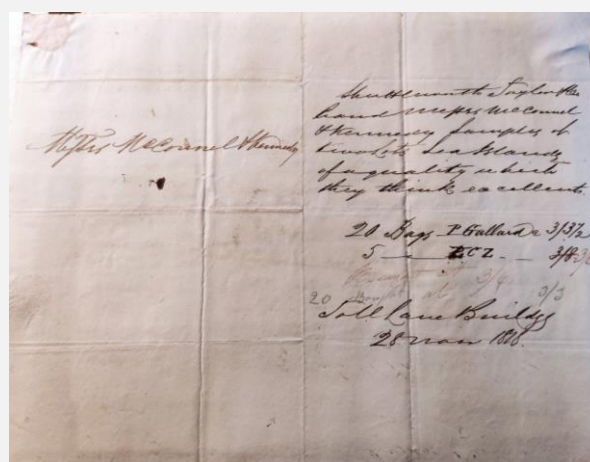 Messrs McConnel & Kennedy
Shuttleworth Taylor & Co
hand Messrs McConnel
& Kennedy samples of
two Lots Sea Islands
of a quality which
they think excellent.
20 Bags P Gallard a 3/3½
5 — 3/8
3/4
20 Bought at 3/3
Toll Lane Buildgs
28 Nov 1816.